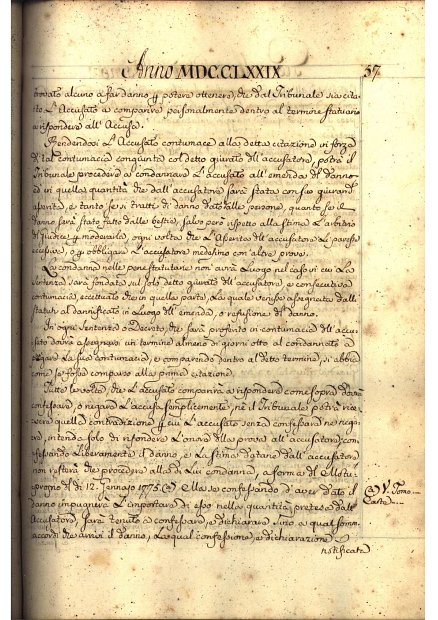 Anno MDCCLXXIX
37.
trovato alcuno a far danno, p potere ottenere, che dal Tribunale sia cita-
to L'Accusato a comparire personalmente dentro al termine statuario
a rispondere all'Accusa.
Rendendosi L'Accusato contumace alla detta citazione in forza
di tal contumacia congiunta col detto giurato dell'accusatore, potrà il
Tribunale procedere a condannare L'accusato all'emenda del danno
ed in quella quantità che dall'accusatore sarà stata con suo giuram.
asserita, e tanto se si tratti di danno dato dalle persone, quanto se il
danno sarà stato fatto dalle bestie, salvo però rispetto alla stima L'arbitrio
di moderarla, ogni volta che L'Asserta dell'accusatore L'paresse
eccessiva, o p obbligare L'accusatore medesimo con altre prove.
La condanna nelle pene statutarie non avrà Luogo nel caso in cui La
sentenza sarà fondata sul solo detto giurato dell'accusatore, e consecutiva
contumacia, eccettuato che in quella parte, La quale venisse assegnata dalli
statuti al dannificato in Luogo dell'emenda, o refusione del danno.
In ogni sentenza o Decreto, che sarà proferito in contumacia dell'accu-
sato dovrà assegnarsi un termine almeno di giorni otto al condannato a
purgare La sua contumacia, e comparendo dentro al detto termine, si abbia
come se fosse comparso alla prima citazione.
Tutte le volte, che L'Accusato comparirà a rispondere come sopra dovrà
confessare, o negare L'accusa semplicemente, nè il Tribunale potrà rice-
vere quella contradizione p cui L'accusato senza confessare ne nega-
re, intenda solo di rifondere L'onere della prova all'accusatore; con-
fessando Liberamente il danno, e La stima datane dall'accusatore
non resterà che procedere alla di Lui condanna, a forma del Motu-
proprio del dì 12. Gennajo 1775. (a) Ma se confessando d'aver dato il
danno impugnerà L'importare di esso nella quantità pretesa dall'
Accusatore, sarà tenuto a confessare, e dichiarare fino a qual somma
accordi che arrivi il danno, La qual confessione, e dichiarazione
notificata
(a) V. Tomo
Carte